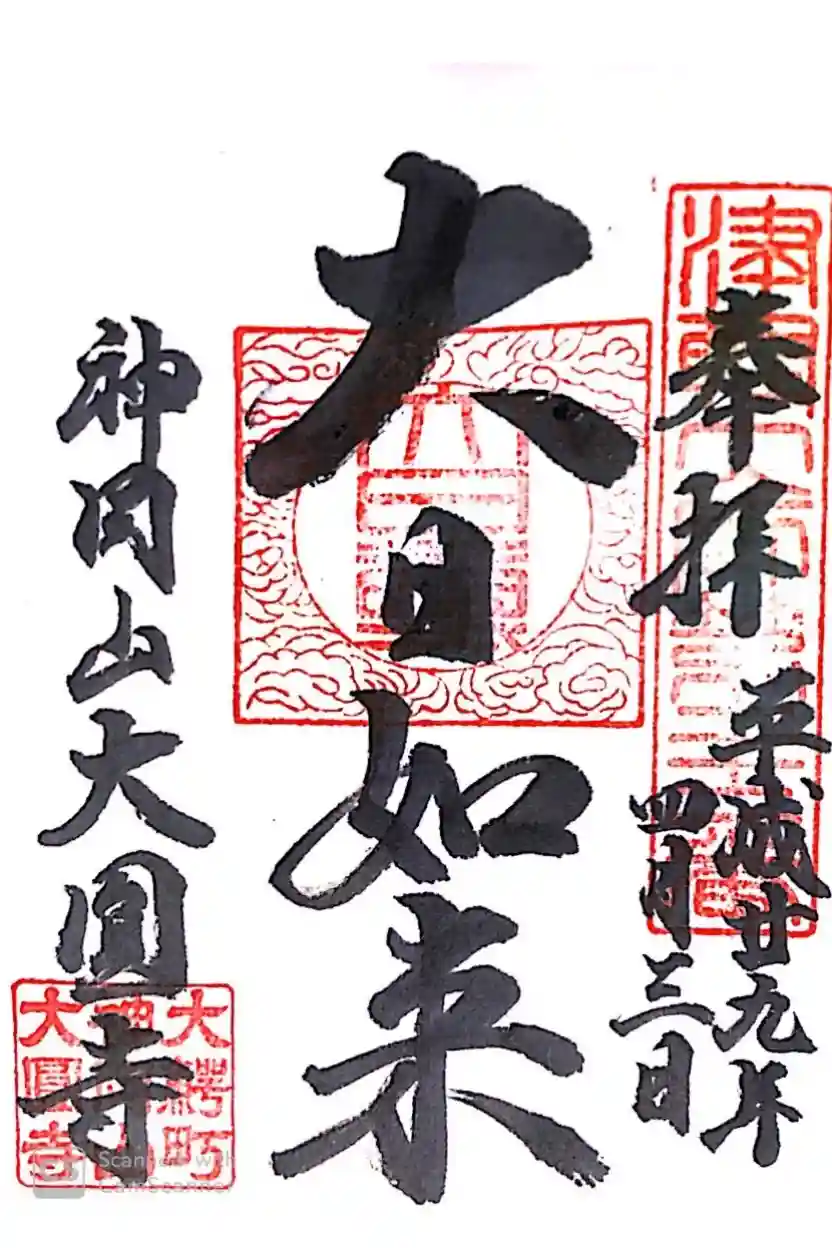 奉拝
平成廿九年
四月三日
大日如来
神岡山大圓寺
大鰐町
大圓寺
Scanned with
CamScanner